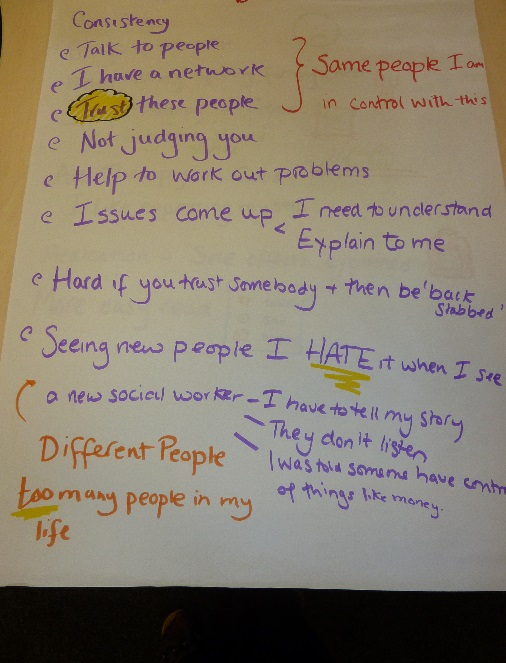 Consistency
Talk to people
I have a network
Trust these people
Same people I am
in control with this
Not judging you
Help to work out problems
Issues come up < I need to understand
Explain to me
Hard if you trust somebody + then be 'back
Stabbed'
Seeing new people I HATE it when I see
a new social worker - I have to tell my story
They don't listen
I was told someone have contr
of things like money.
Different People
too many people in my
life